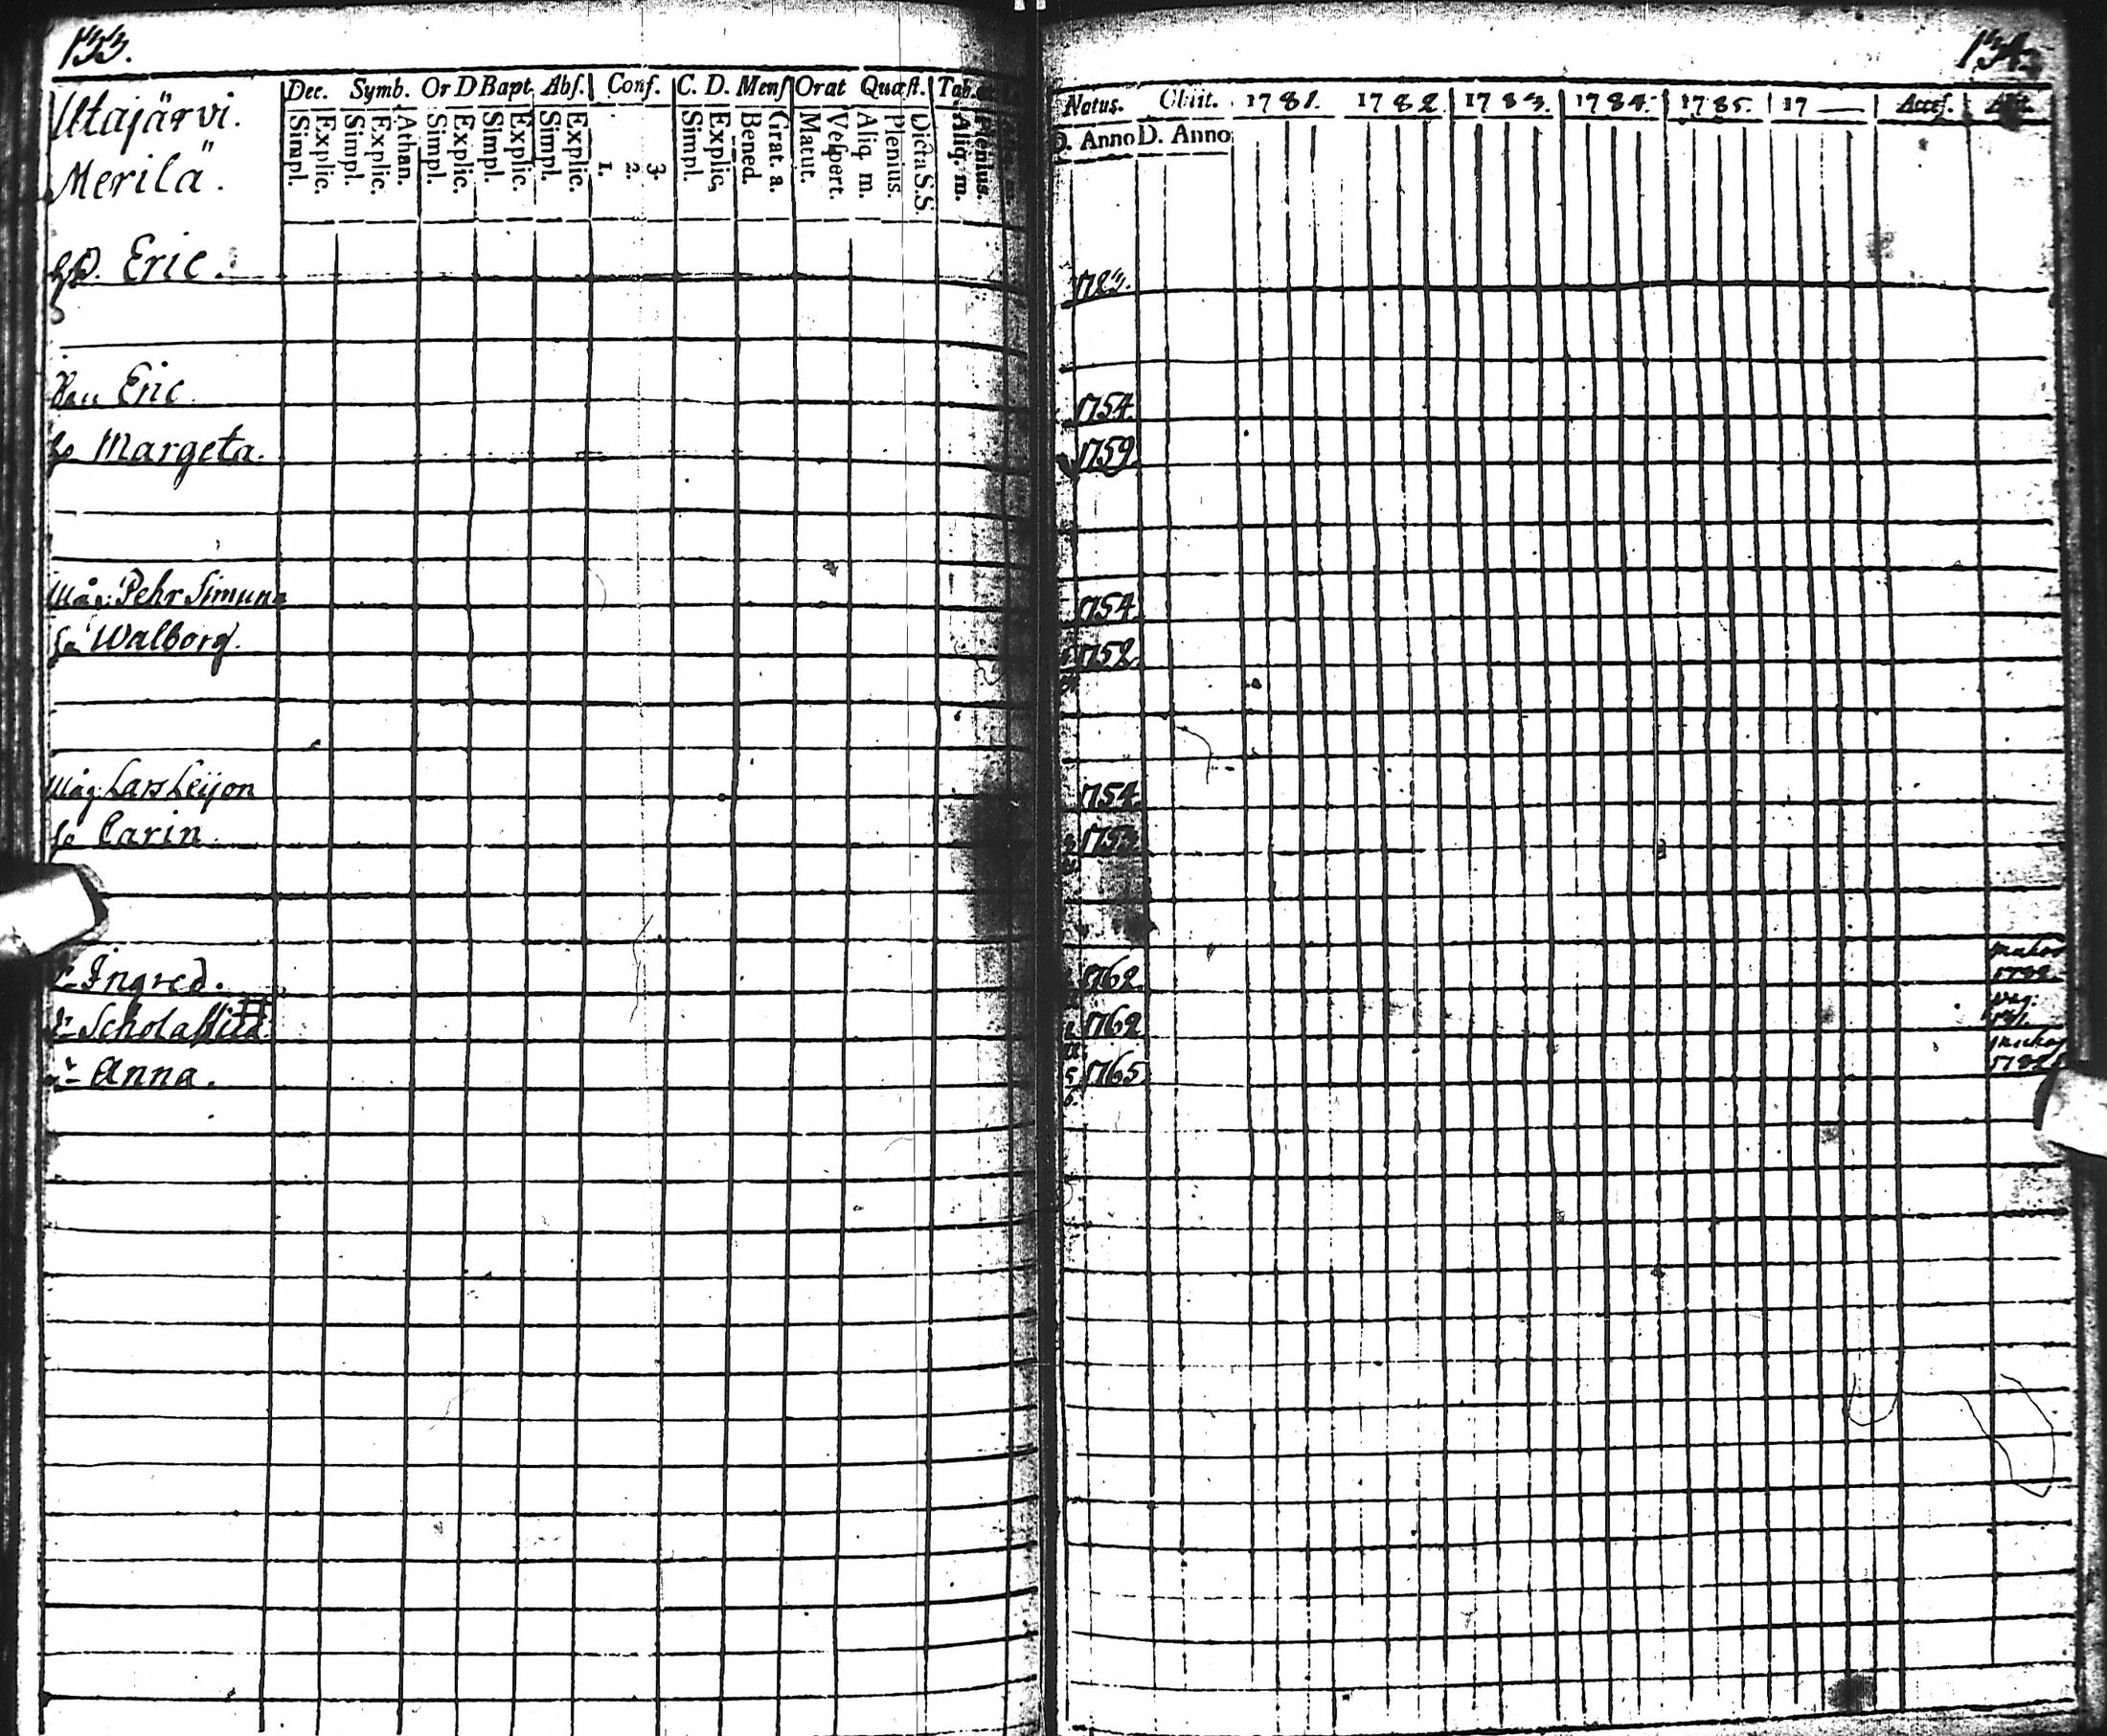 133.
Utajärvi.
Merilä.
Dec. Symb. Or D Bapt. Abs. Conf. C. D. Mens Orat Quæst. Tab.
Simpl. Explic. Simpl. Explic. Athan. Simpl. Explic. Simpl. Explic. Simpl. Explic. 1. 2. 3. Simpl. Explic. Bened. Grat. a. Matut. Vespert. Aliq. m. Plenius. Dicta.S.S. Aliq. m. Plenius.
Eric.
Eric
Margeta.
Måg: Pehr Simun
Walborg.
Måg: Lars Leijon
Carin
Ingred.
Scholastica.
Anna.
134.
Natus. Obiit. 1781. 1782. 1783. 1784. 1785. 17 Accef.
D. Anno D. Anno
1754.
1759.
1754.
1752.
1754.
1762.
1762
1765